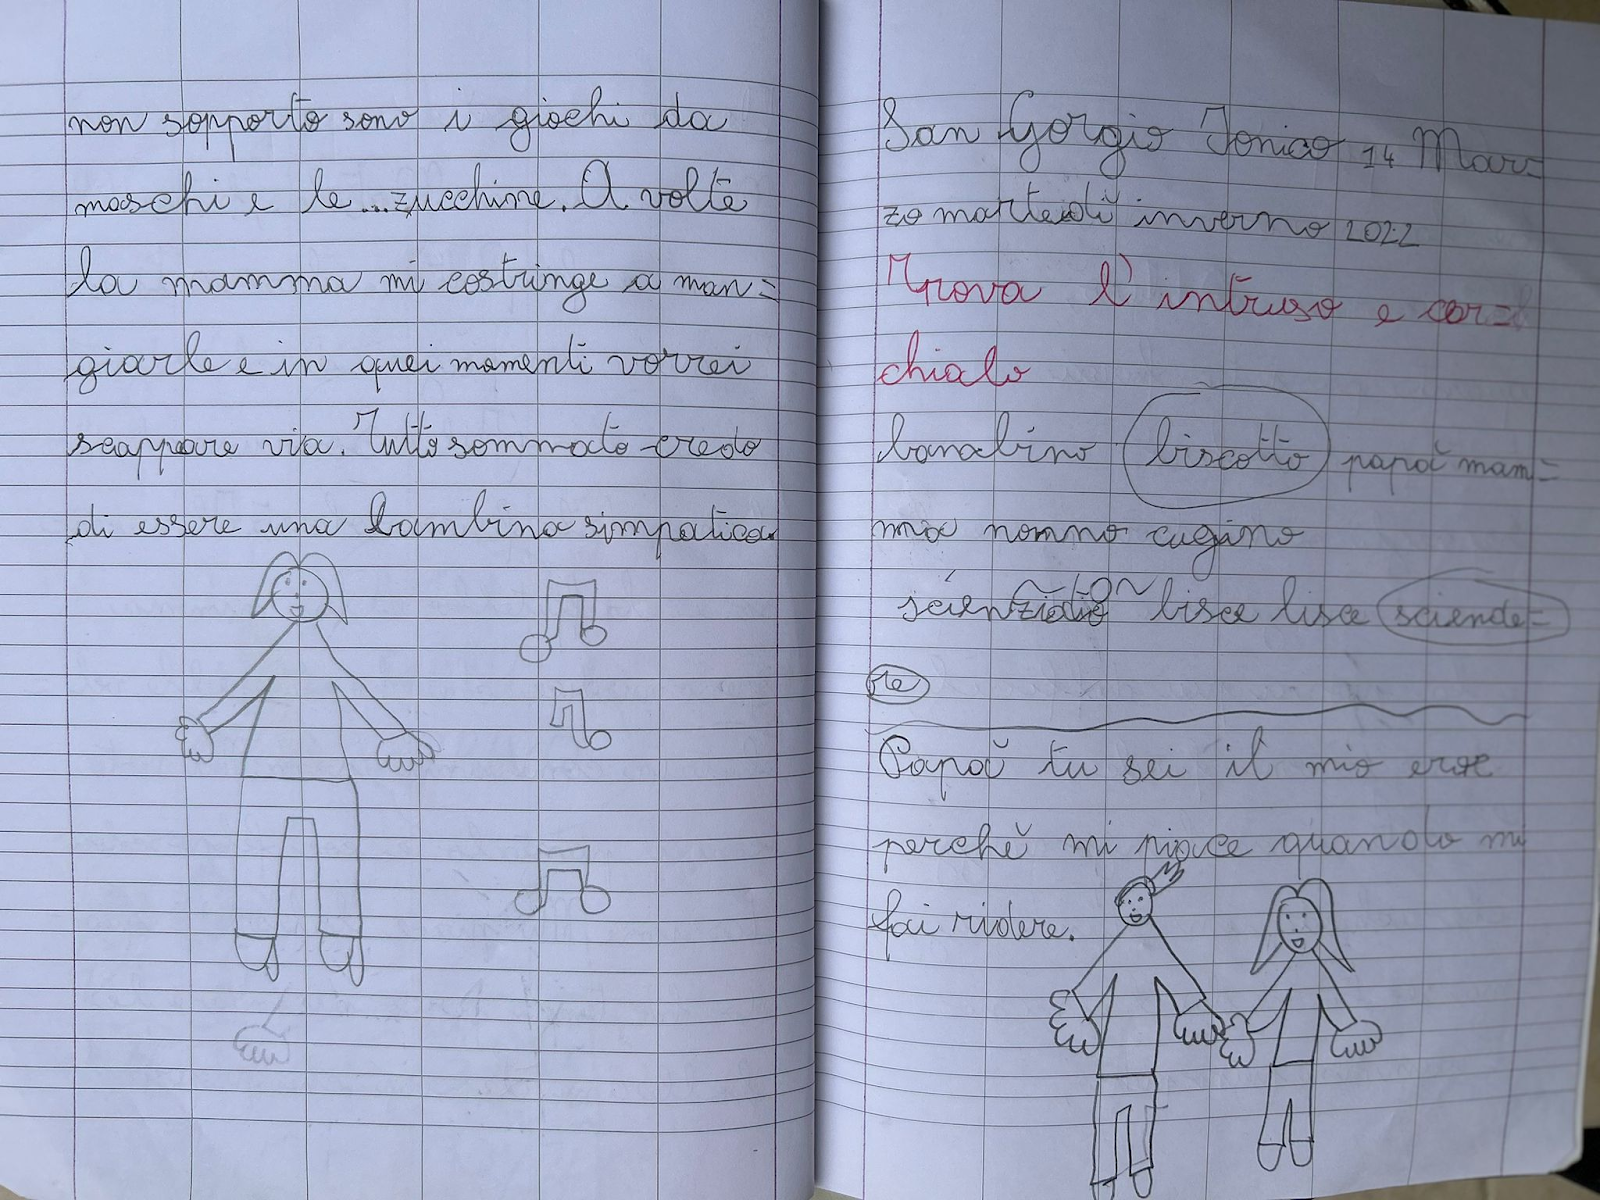 non sopporto sono i giochi da
maschi e le...zucchine. A volte
la mamma mi costringe a man=
giarle e in quei momenti vorrei
scappare via. Tutto sommato credo
di essere una bambina simpatica
San Gorgio Jonico 14 Mar=
zo martedì inverno 2022
Trova l'intruso e cer=
chialo
bambino biscotto papà mam=
ma nonno cugino
bisce lisce sciende=
re
Papà tu sei il mio eroe
perchè mi piace quando mi
fai ridere.